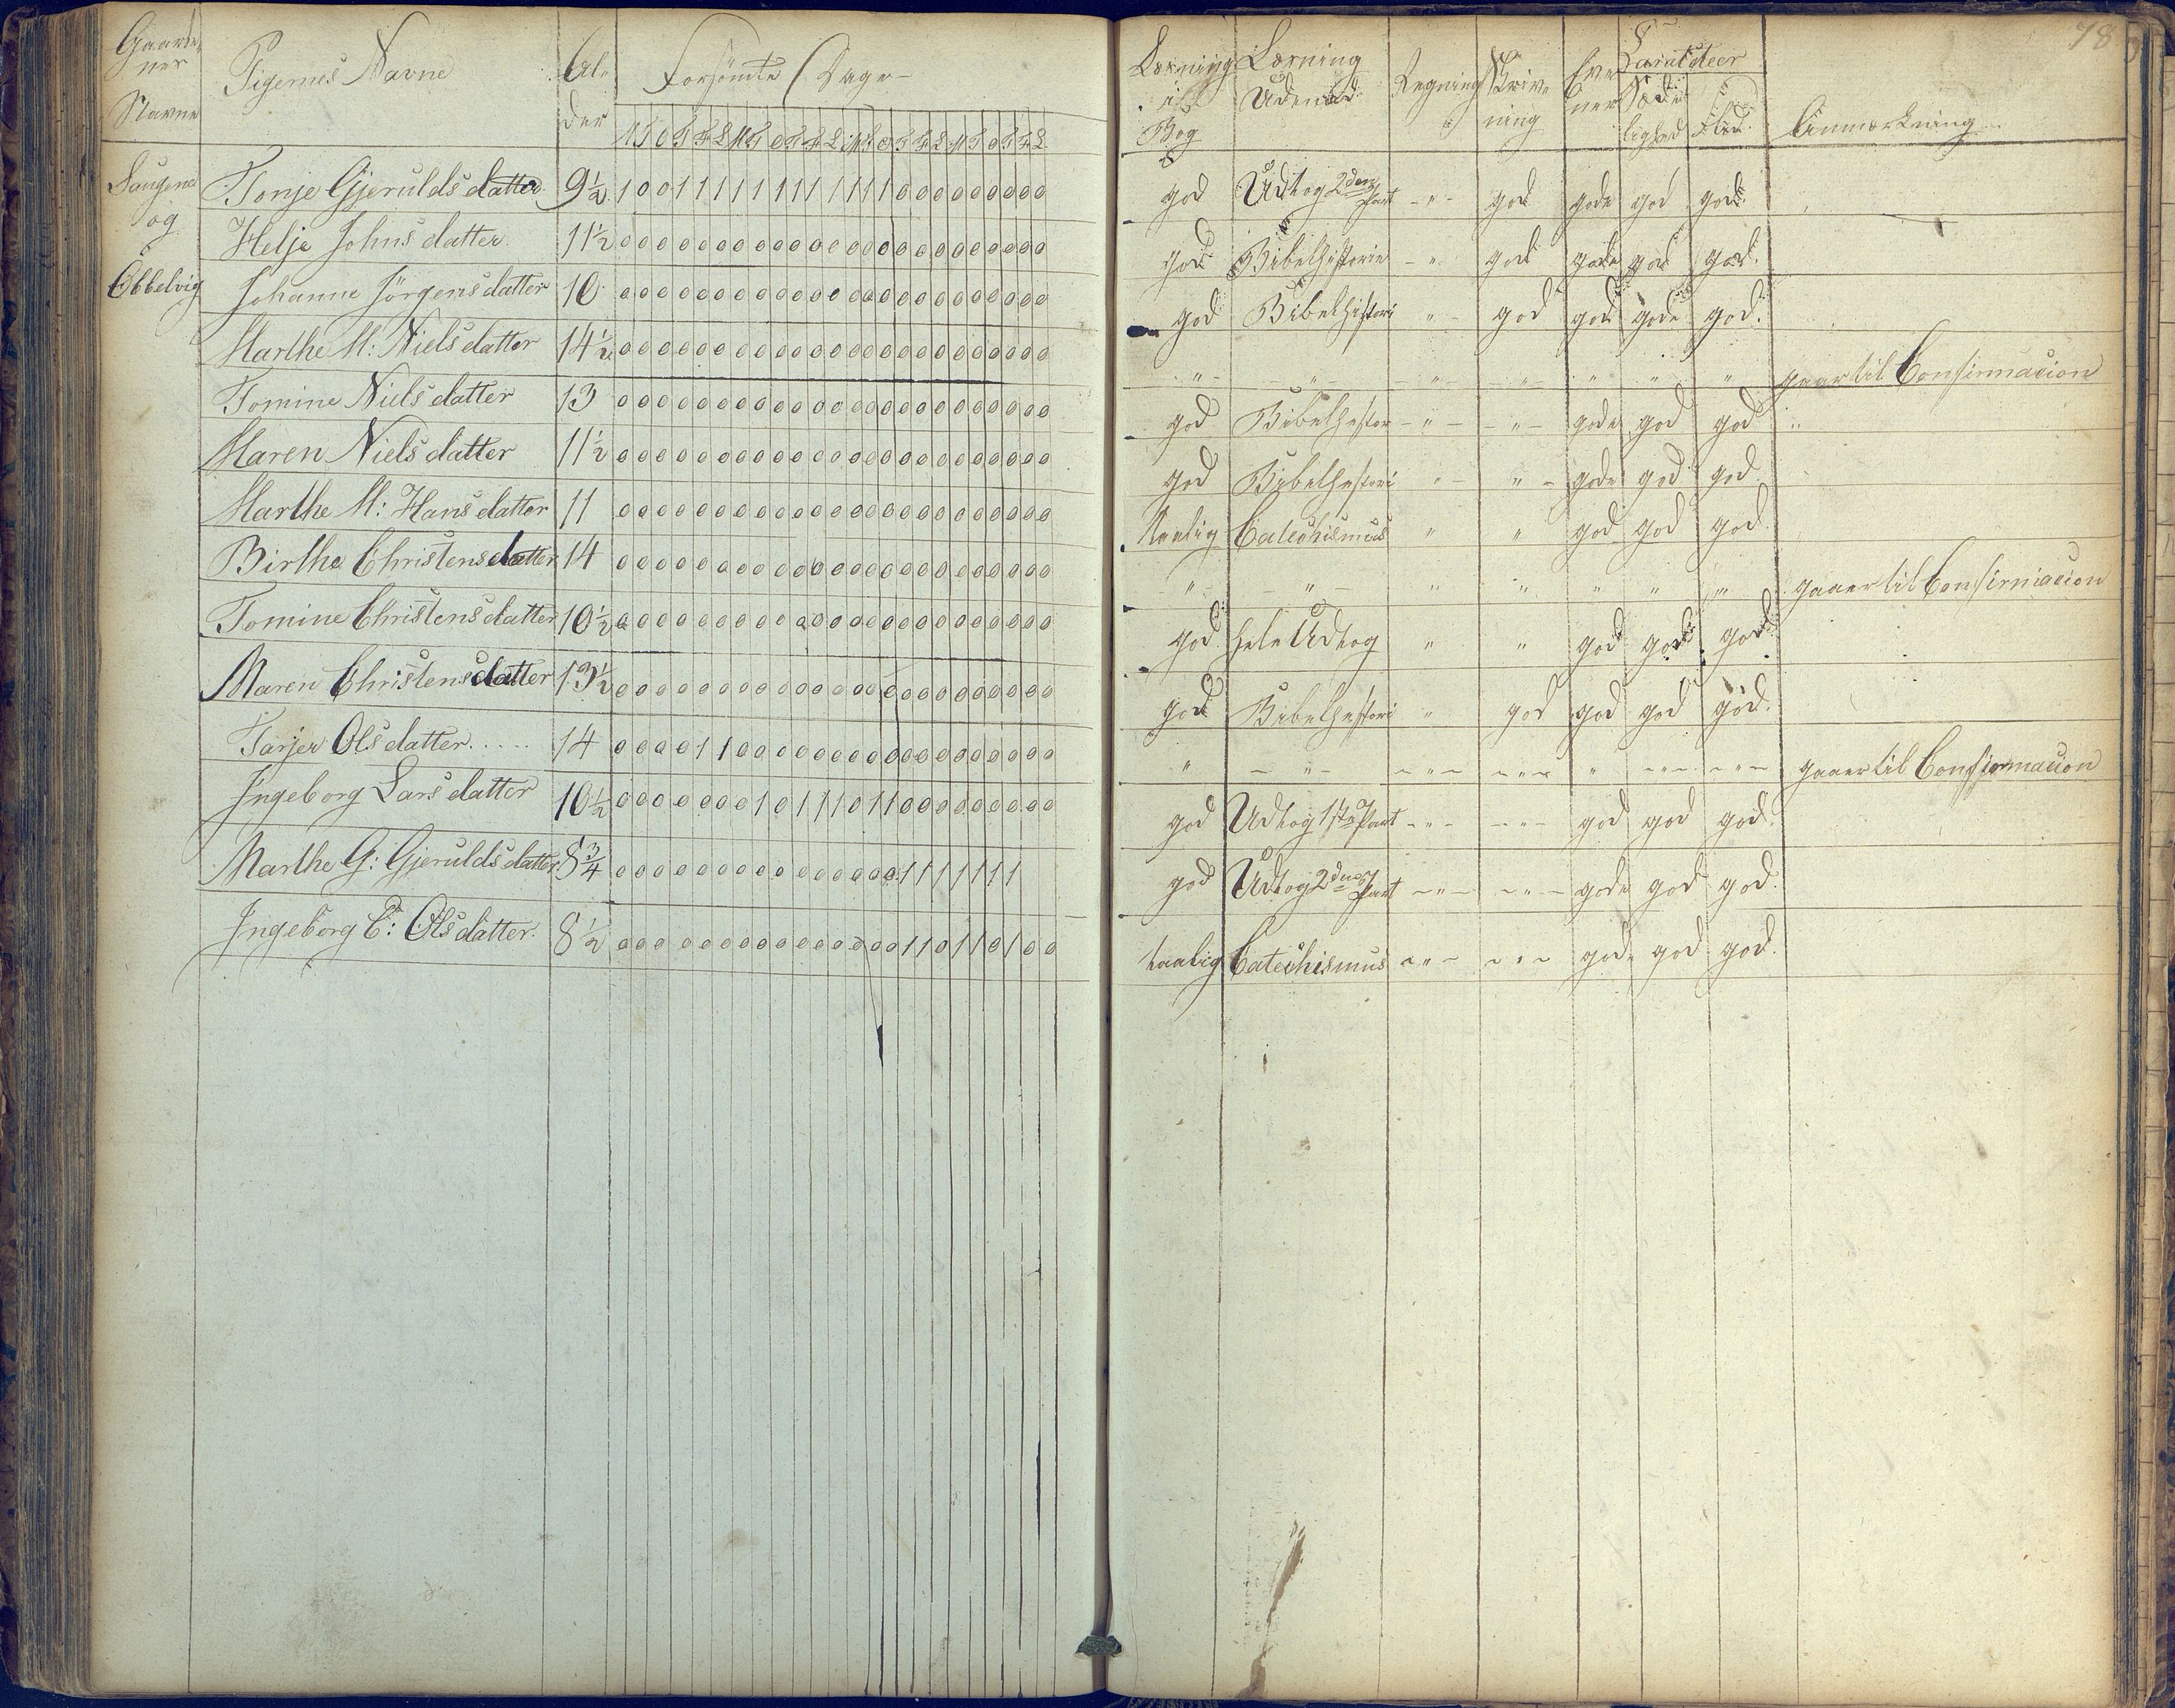 78
Gaarde, Pigernes Navne Al- Forsömte Dage Læsning Læsning Regning Skriv- Eve Caracteer
ner der i Udenad ning ner Sæde Flid. Anmærkning
Navne M T O T F L M T O T F L M T O T F L M T O T F L Bog lighed
Saugene Tonje Gjerulds datter 9½ 1 0 0 1 1 1 1 1 1 1 1 1 1 1 1 1 0 0 0 0 0 0 0 0 god Udtog 2den Part - " - god gode god god.
og Helje Johns datter 11½ 0 0 0 0 0 0 0 0 0 0 0 0 0 0 0 0 0 0 0 0 0 0 0 0 god Bibelhistorie - " god gode god god.
Ebbelvig Johanne Jörgens datter 10 0 0 0 0 0 0 0 0 0 0 0 0 0 0 0 0 0 0 0 0 0 0 0 0 god Bibelhistori " - god god gode god.
Marthe M: Niels datter 14½ 0 0 0 0 0 0 0 0 0 0 0 0 0 0 0 0 0 0 0 0 0 0 0 0 " " " " " " " gaar til Confirmacion
Tomine Niels datter 13 0 0 0 0 0 0 0 0 0 0 0 0 0 0 0 0 0 0 0 0 0 0 0 0 god Bibelhestor - " - - " - gode god god "
Maren Niels datter 11½ 0 0 0 0 0 0 0 0 0 0 0 0 0 0 0 0 0 0 0 0 0 0 0 0 god Bibelhestori " - " - gode god god
Marthe M: Hans datter 11 0 0 0 0 0 0 0 0 0 0 0 0 0 0 0 0 0 0 0 0 0 0 0 0 taalig Catechismus " " god god god.
Birthe Christens datter 14 0 0 0 0 0 0 0 0 0 0 0 0 0 0 0 0 0 0 0 0 0 0 0 0 " - " - " " " " " gaaer til Confirmacion
Tomine Christens datter 10½ 0 0 0 0 0 0 0 0 0 0 0 0 0 0 0 0 0 0 0 0 0 0 0 0 god hele Udtog " " god god god
Maren Christens datter 13½ 0 0 0 0 0 0 0 0 0 0 0 0 0 0 0 0 0 0 0 0 0 0 0 0 god Bibelhestori " god god god god.
Tarjer Ols datter..... 14 0 0 0 0 1 1 0 0 0 0 0 0 0 0 0 0 0 0 0 0 0 0 0 0 " - " - - " - - " - " - " - - " - gaaer til Confirmacion
Ingeborg Lars datter 10½ 0 0 0 0 0 0 0 1 0 1 1 1 0 1 1 0 0 0 0 0 0 0 0 0 god Udtog 1ste Part - " - - " - god god god.
Marthe G: Gjerulds datter 8¾ 0 0 0 0 0 0 0 0 0 0 0 0 0 0 0 0 1 1 1 1 1 1 1 god Udtog 2den Part - " - - " - gode god god.
Ingeborg C: Ols datter. 8½ 0 0 0 0 0 0 0 0 0 0 0 0 0 0 0 1 1 0 1 1 0 1 0 0 taalig Catechismus - " - - " - gode god god.